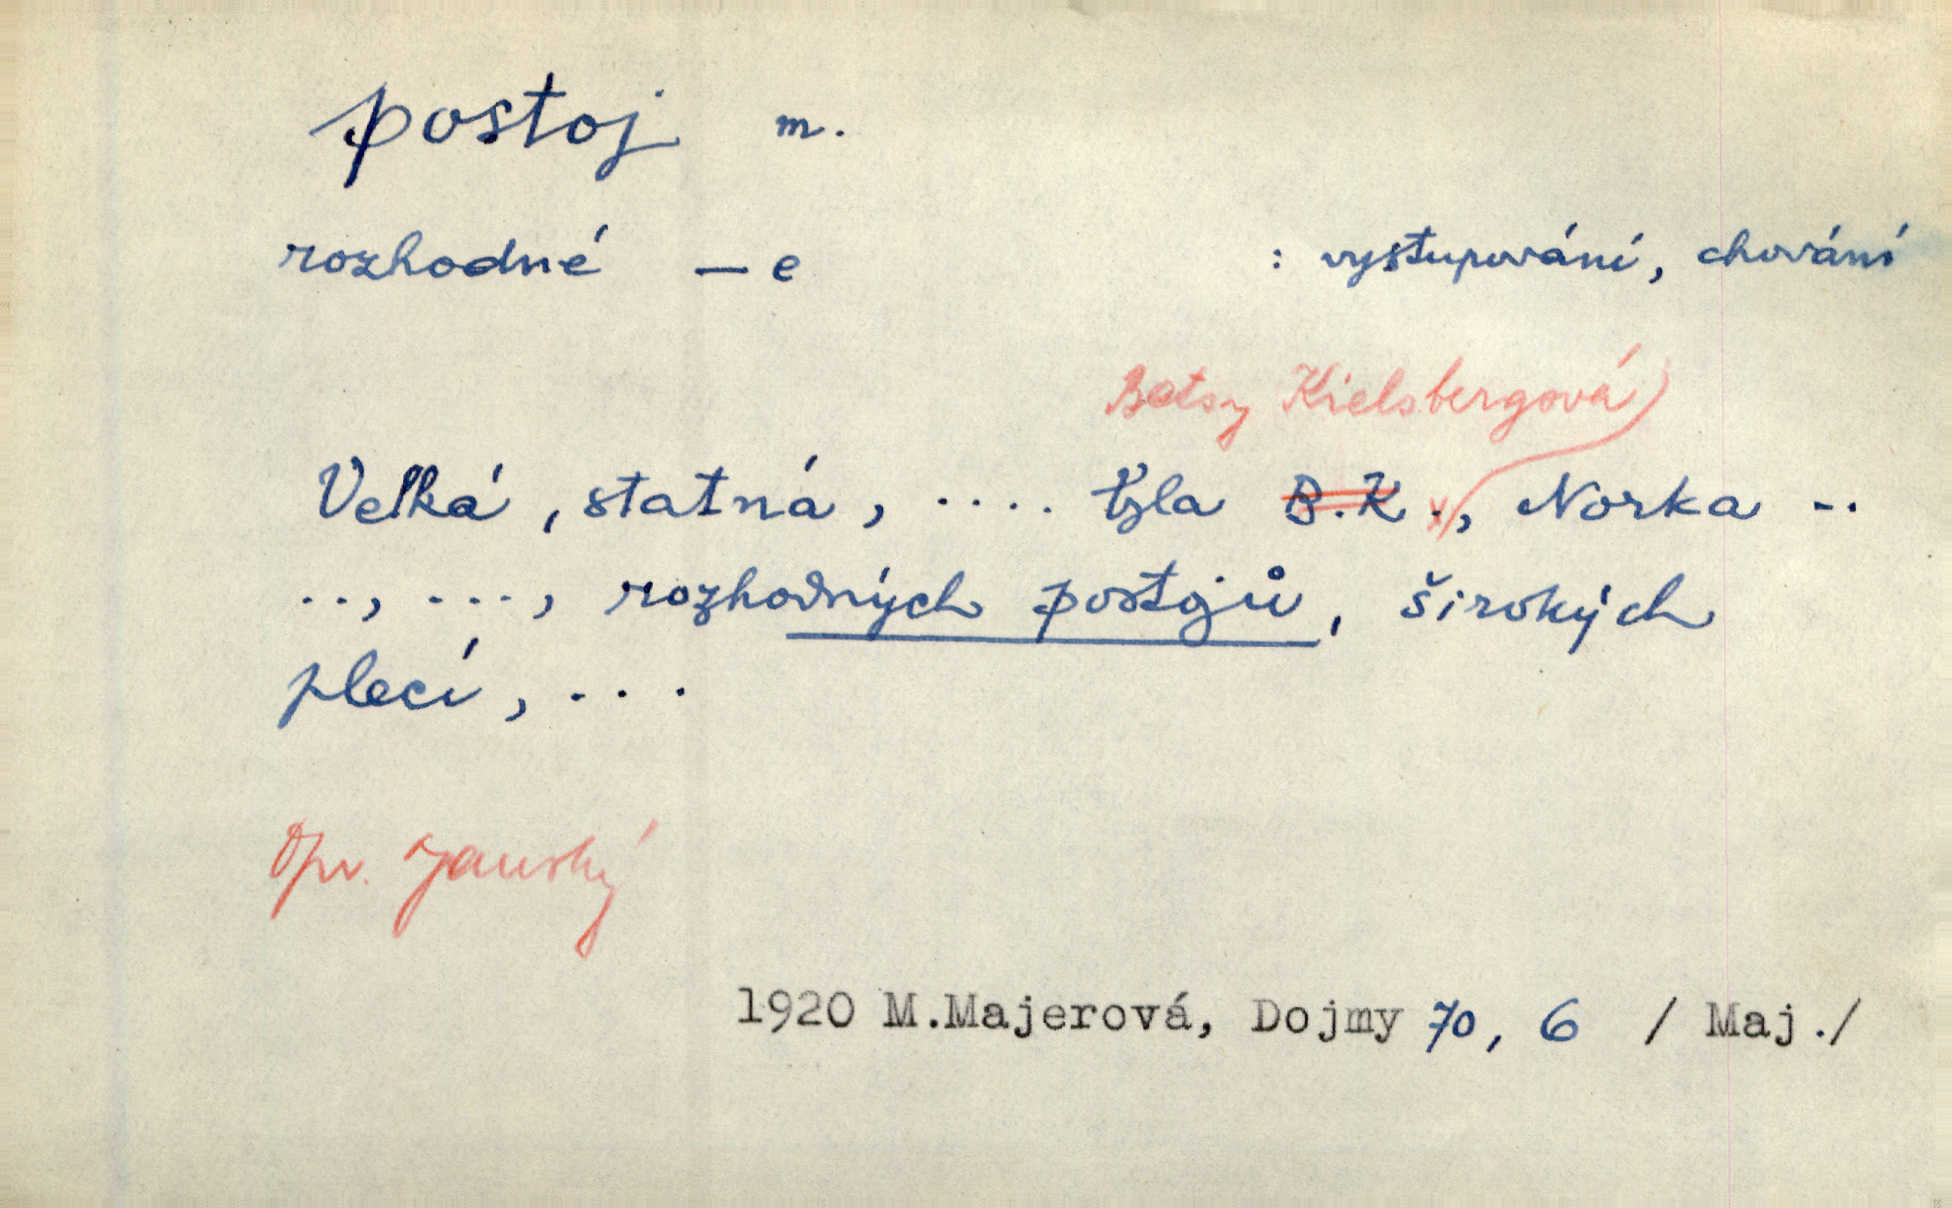 postoj m.
rozhodné — e : vystupování, chování
Betsy Kielsbergová
Velká, statná, .... byla B.K., Norka ..
.., ..., rozhodných postojů, širokých
plecí, ...
Opr. Janský
1920 M.Majerová, Dojmy 70, 6 / Maj./